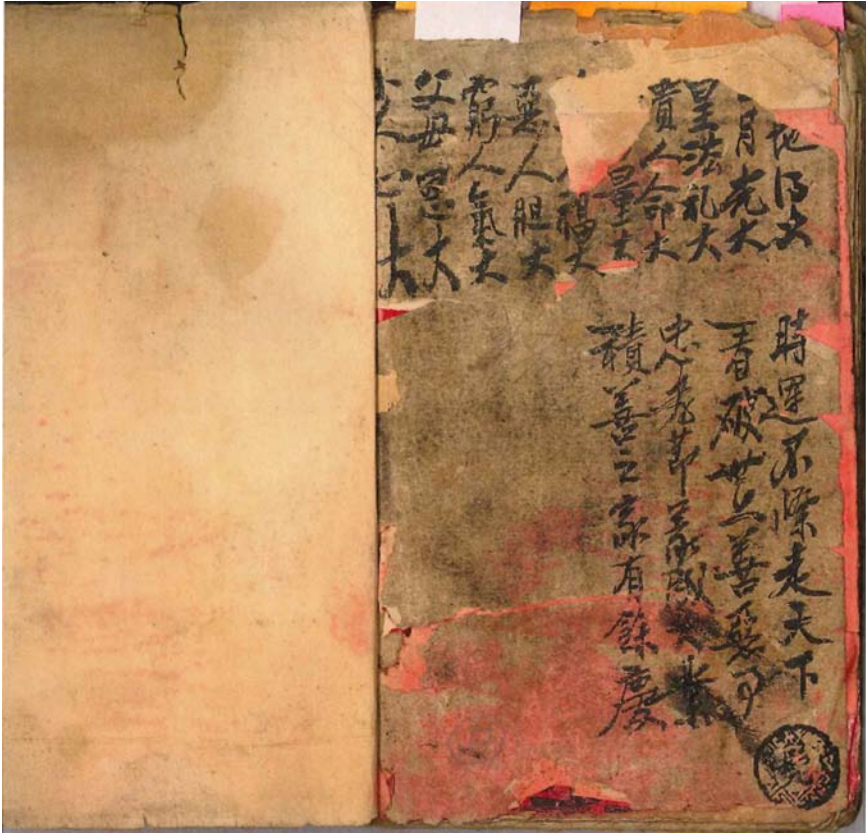 地得大
月光大
皇法礼大
貴人命大
量大
福大
惡人胆大
窮人氣大
父母恩大
大
時運不際走天下
看破世上善惡事
忠孝節義
積善之家有餘慶